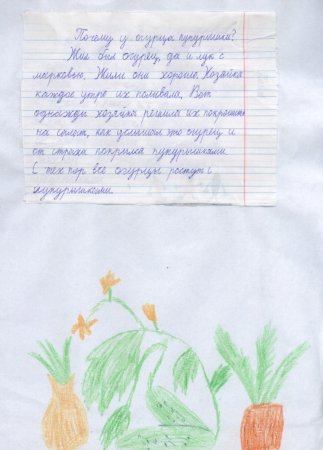 Почему у огурца пупурышки?
Жил был огурец, да и лук с
морковью. Жили они хорошо. Хозяйка
каждое утро их поливала. Вот
однажды хозяйка решила их покрошить
на салат, как услышал это огурец и
от страха покрылся пупурышками.
С тех пор все огурцы растут с
пупурышками.